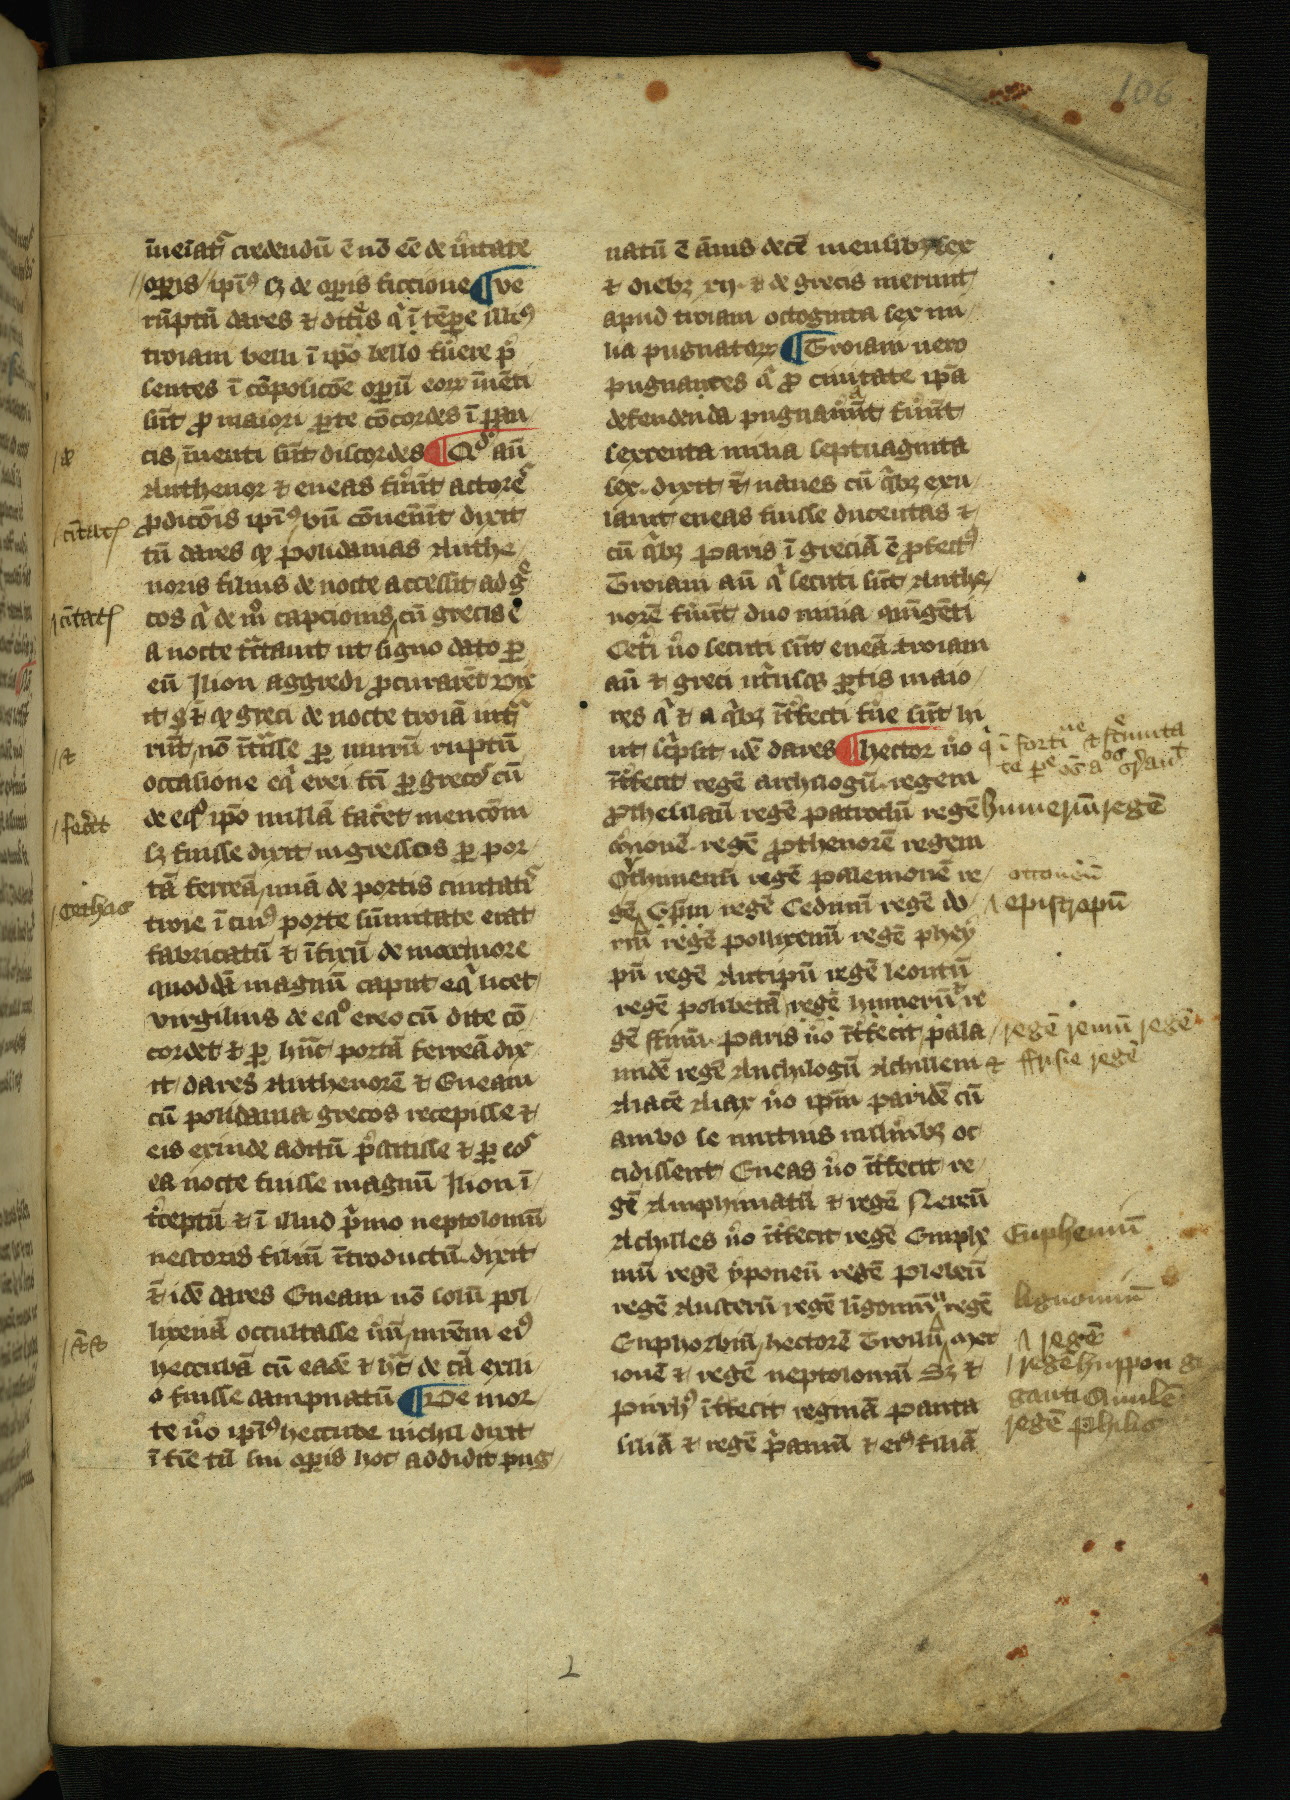 106
īneīat᷑ credendū ē nō eē de ūitate
op̄is ipī⁹ sʒ de op̄is ficcione ¶ve
rūptū dares ⁊ dittis q̄ ī tēp̄e illi⁹
troiani belli ī ip̄o bello fūere p̄
sentes ī cōposicōe op̄ū eorꝝ īuēti
sūt ꝓ maiori ꝑte cōcordes ī ꝑau
cis īuenti sūt discordes ¶Qd̕ aū
Anthenor ⁊ eneas fūīt actorē
ꝓdicōis ipī⁹ vū cōueīūt dixit
tū dares ꝙ polidamas Anthe
noris filius de nocte accessit ad gͤ
cos q̄ de mō capcionis cū grecis ē
a nocte tͣctauit ut signo dato ꝑ
eū Ilion aggredi ꝓcurarēt dix
it ꝙ greci de nocte troiā int̄
rūt nō ītͣsse ꝑ murū ruptū
occasione eq̄ erei fc̄i ꝑ grecos cū
de eqͦ ip̄o nullā faćet mencōm
sʒ fuisse dixit ingressus ꝑ por
tā ferreā unā de portis ciuitatꝭ
troie ī cui⁹ porte sūmitate erat
fabricatū ⁊ īfixū de marmore
quoddā magnū caput eq̄ licet
virgilius de eqͦ ereo cū dite cō
cordet ⁊ ꝑ hūc portā ferreā dix
it dares Anthenorē ⁊ Eneam
cū polidama grecos recepisse ⁊
eis exinde aditū p̄stitisse ⁊ ꝑ eos
ea nocte fuisse magnū Ilion ī
t̄ceptū ⁊ ī illud p̄mo neptolomū
nestoris filiū ītroductū dixit
idē dares Eneam nō solū pol
lixenā occultasse mrēm ei⁹
heccubā cū eadē ⁊ de cā exili
o fuisse dampnatū ¶De mor
te ūo ipī⁹ heccube nichil dixit
ī fīe tn̄ sui op̄is hoc addidit pug
natū ē ānis decē mensibʒ sex
⁊ diebʒ xij ⁊ de grecis merunt
apud troiam octoginta sex mi
lia pugnatorꝝ ¶Troiam uero
pugnantes q̄ ꝓ ciuitate ip̄a
defendenda pugnaūīt fūīt
sexcenta milia septuaginta
sex dixit naues cū q̄bʒ exu
lauit eneas fuisse ducentas ⁊
cū q̄bʒ paris ī greciā ē ꝓfect⁹
Troiam aū q̄ secuti sūt Anthe
norē fūīt duo milia quīgēti
Cet̄i ūo secuti sūt eneā troiam
aū ⁊ greci ut̄usqʒ ꝑtis maio
res q̄ ⁊ a q̄bʒ īt̄fecti fūe sūt hi
ut sc̄psit idē dares ¶hector ūo
īt̄fecit regē archilogū regem
ꝓthesilaū regē patroclū regē
regē ꝓthenorē regem
regē palemonē re
gē regē Cedium regē do
rīū regē pollixenū regē phey
pū regē Antipū regē leontū
regē polibetā regē humerū re
gē Paris ūo īt̄fecit pala
midē regē Anchilogū Achillem ⁊
Aiacē Aiax ūo ipm̄ paridē cū
ambo se mutuis uuln̄ibʒ oc
cidissent Eneas ūo īt̄fecit re
gē Amphimatū ⁊ regē Nereū
Achilles ūo īt̄fecit regē Emphe
mū regē yponeū regē plebeū
regē Austerū regē ligoniū regē
Euphorbiū hectorē Troilū
ionē ⁊ regē neptolomū Sʒ ⁊
pirrh⁹ īt̄fecit reginā panta
siliā ⁊ regē p̄amū ⁊ ei⁹ filiā
ciūtatꝭ
ciūtatꝭ
humeriū regē
epistropū
regē remū regē
frisie regē
Euphemiū
regē
regē huppon gi
regē philis